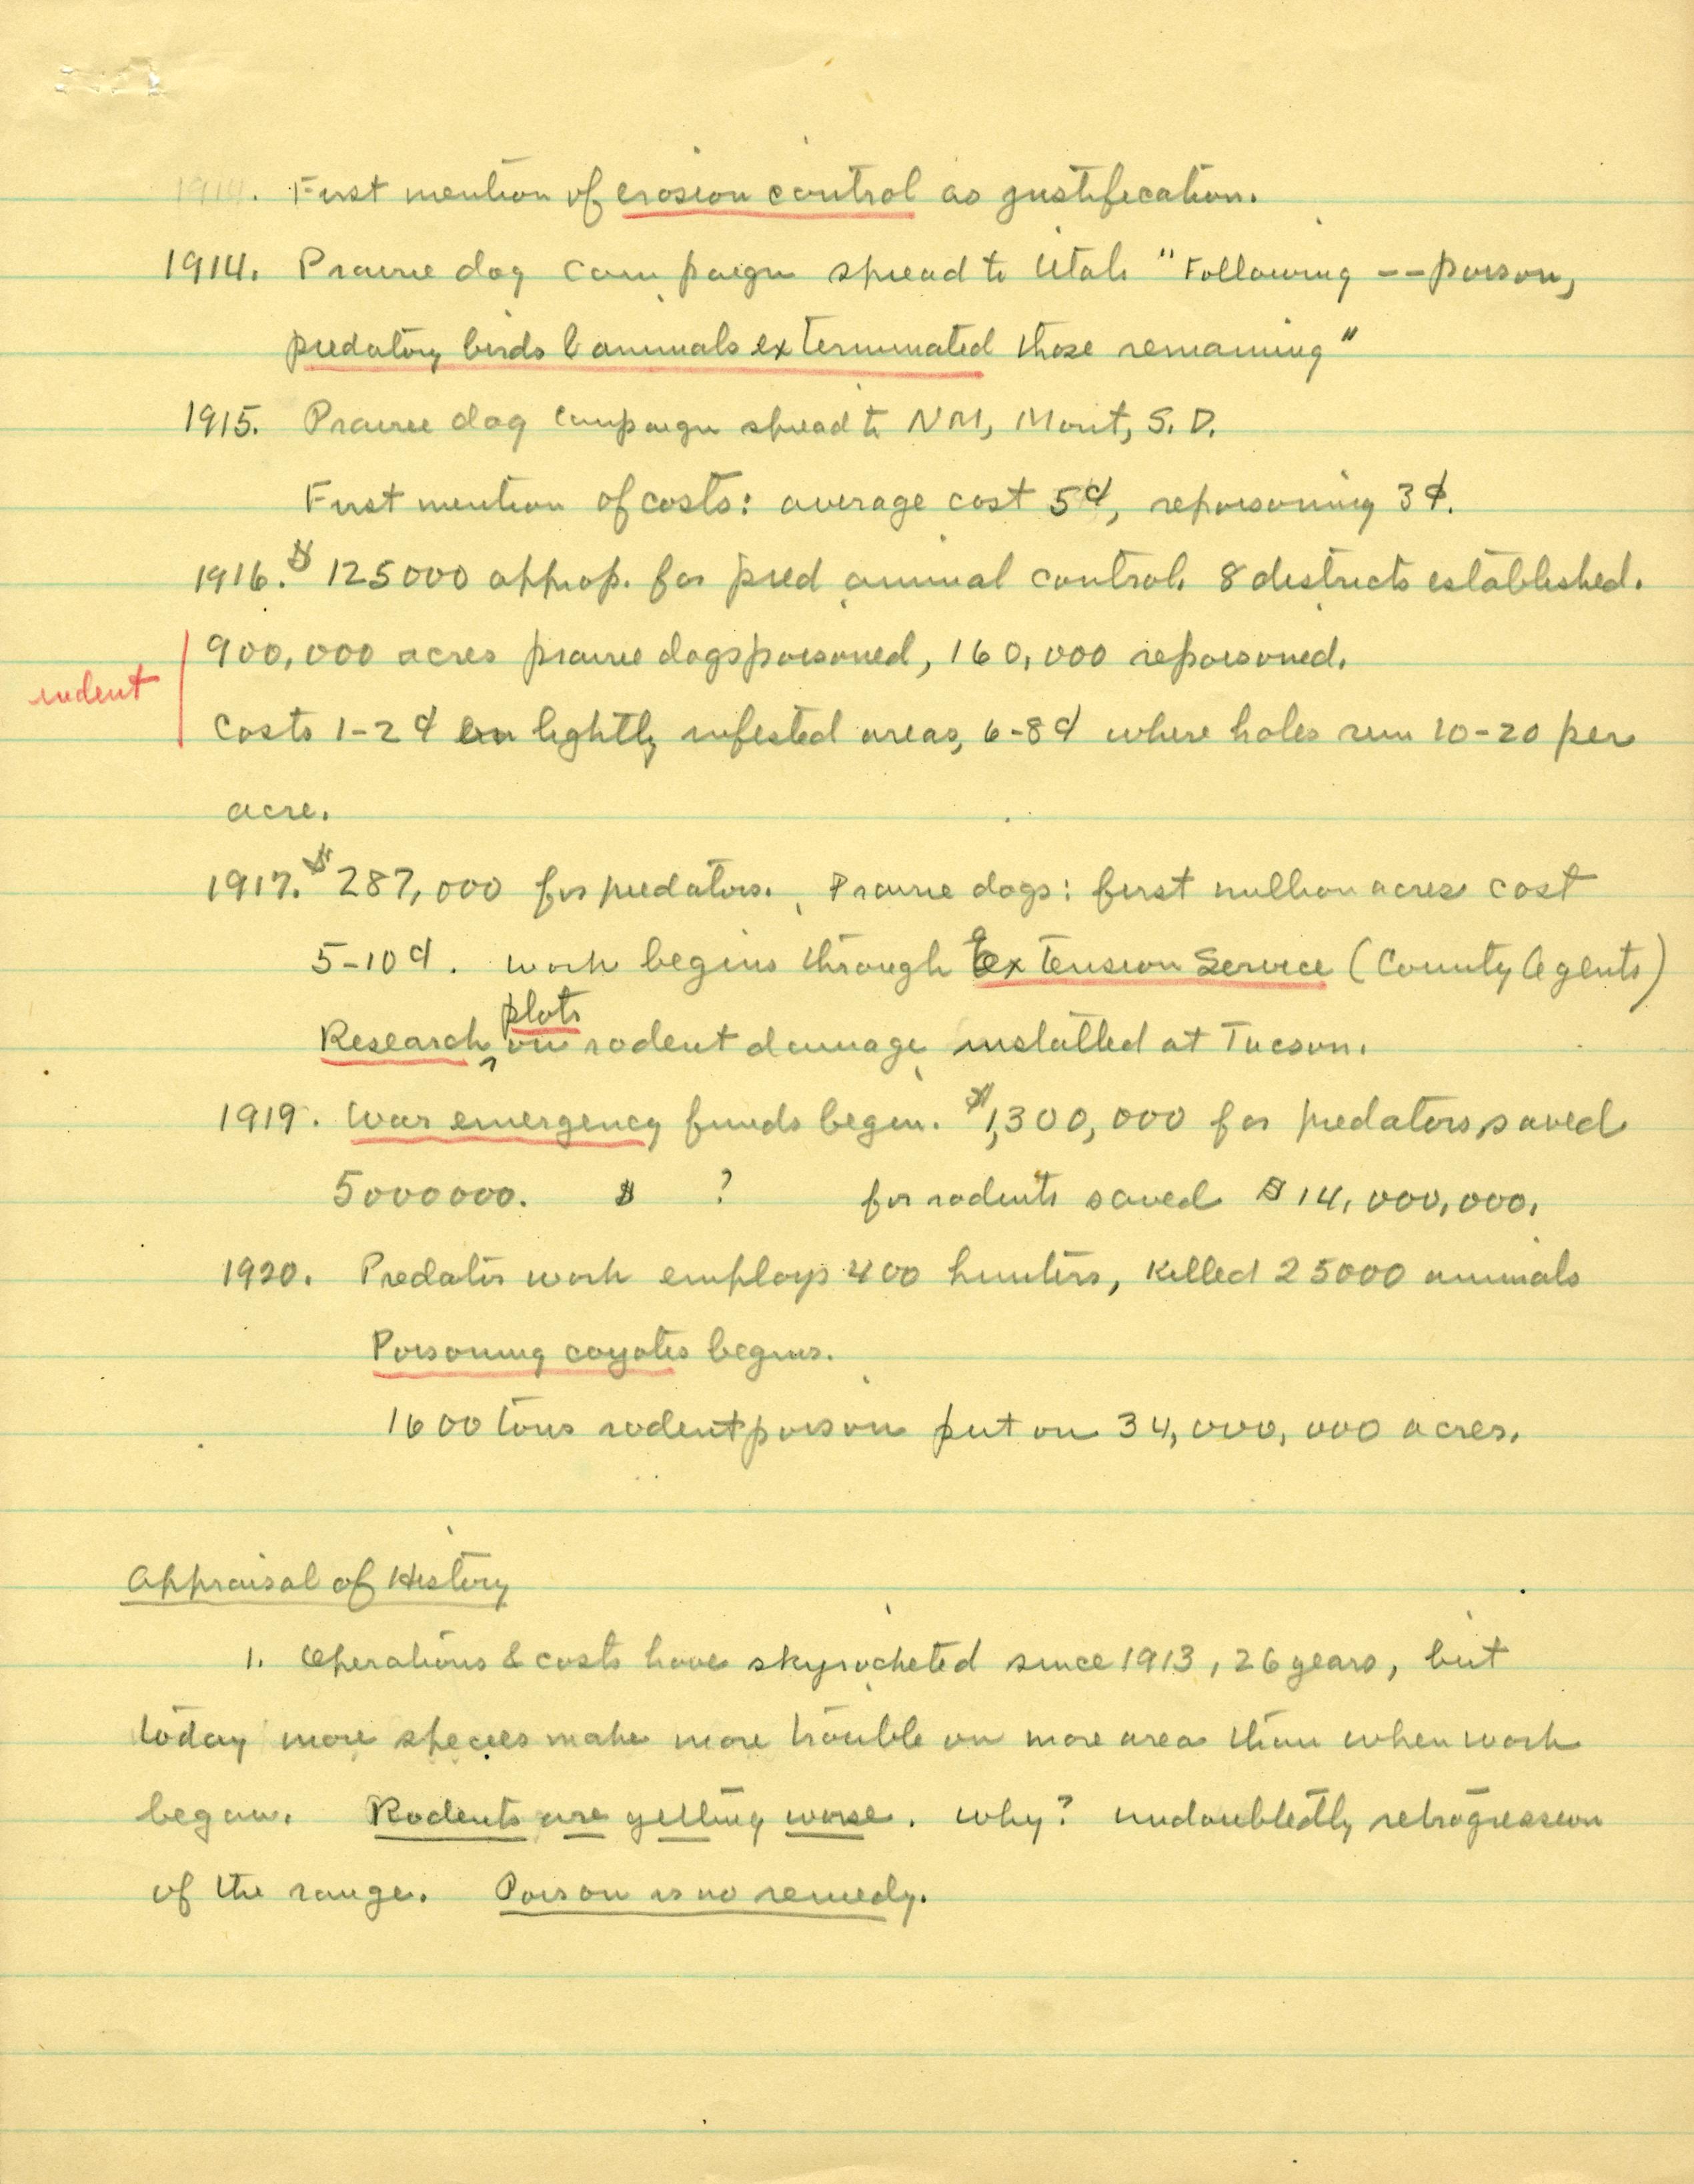 1914. First mention of erosion control as justification.
1914. Prairie dog campaign spread to Utah "Following -- poison,
predatory birds & animals exterminated those remaining"
1915. Prairie dog campaign spread to NM, Mont, S. D.
First mention of costs: average cost 5¢, repoisoning 3¢.
1916. $125000 approp. for pred animal control. 8 districts established.
900,000 acres prairie dogs poisoned, 160,000 repoisoned.
indent
Costs 1-2¢ on lightly infested areas, 6-8¢ where holes run 10-20 per
acre.
1917. $287,000 for predators. Prairie dogs: first million acres cost
5-10¢. Work begins through Extension Service (County Agents)
Research plots on rodent damage installed at Tucson.
1919. War emergency funds begin. $1,300,000 for predators, saved
5000000. $ ? for rodents saved $14,000,000.
1920. Predator work employs 400 hunters, killed 25000 animals
Poisoning coyotes begins.
1600 tons rodent poison put on 34,000,000 acres.
Appraisal of History
1. Operations & costs have skyrocketed since 1913, 26 years, but
today more species make more trouble on more area than when work
began. Rodents are getting worse. Why? Undoubtedly retrogression
of the range. Poison is no remedy.